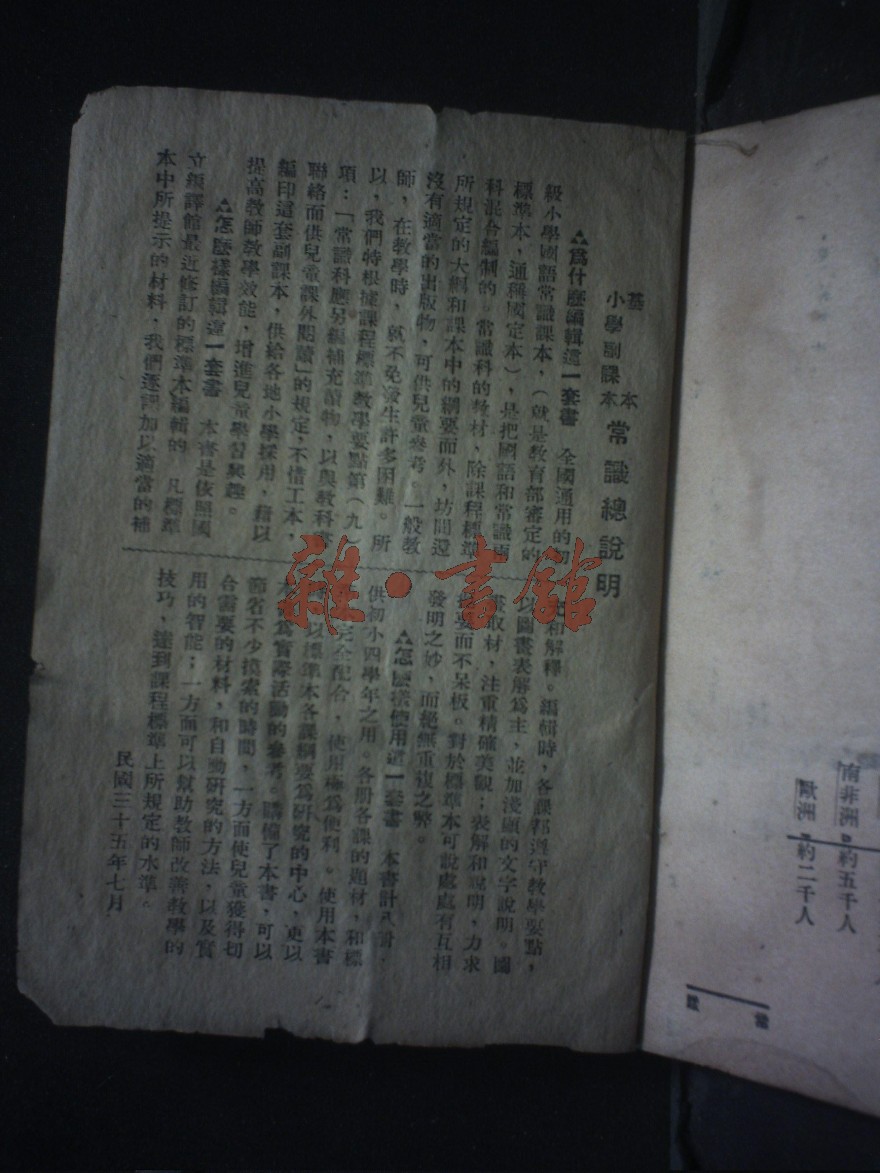 基本
小學副課本
常識總說明
▲爲什麽編輯這一套書　全國通用的初
級小學國語常識課本，（就是教育部審定的
標準本，通稱國定本），是把國語和常識兩
科混合編制的。常識科的教材，除課程標準
所規定的大綱和課本中的綱要而外，坊間還
沒有適當的出版物，可供兒童參考。一般教
師，在教學時，就不免發生許多困難。所
以，我們特根據課程標準教學要點第（九）
項：「常識科應另編補充讀物，以與教科書
聯絡而供兒童課外閱讀」的規定，不惜工本，
編印這套副課本，供給各地小學採用，藉以
提高教師教學效能，增進兒童學習興趣。
▲怎麽樣編輯這一套書　本書是依照國
立編譯館最近修訂的標準本編輯的　凡標準
本中所提示的材料，我們逐課加以適當的補
和解釋。編輯時，各課都遵守教學要點，
以圖畫表解爲主，並加淺顯的文字說明。圖
畫取材，注重精確美觀；表解和說明，力求
要而不呆板。對於標準本可說處處有互相
發明之妙，而絕無重複之弊。
▲怎麽樣使用這一套書　本書計八冊，
供初小四學年之用。各册各課的題材，和標
完全配合，使用極爲便利。使用本書
以標準本各課綱要爲研究的中心，更以
本書爲實際活動的參考。購備了本書，可以
節省不少摸索的時間，一方面使兒童獲得切
合需要的材料，和自動研究的方法，以及實
用的智能；一方面可以幫助教師改善教學的
技巧，達到課程標準上所規定的水準。
民國三十五年七月
雜·書館
南非洲 約五千人
歐洲 約二千人
常